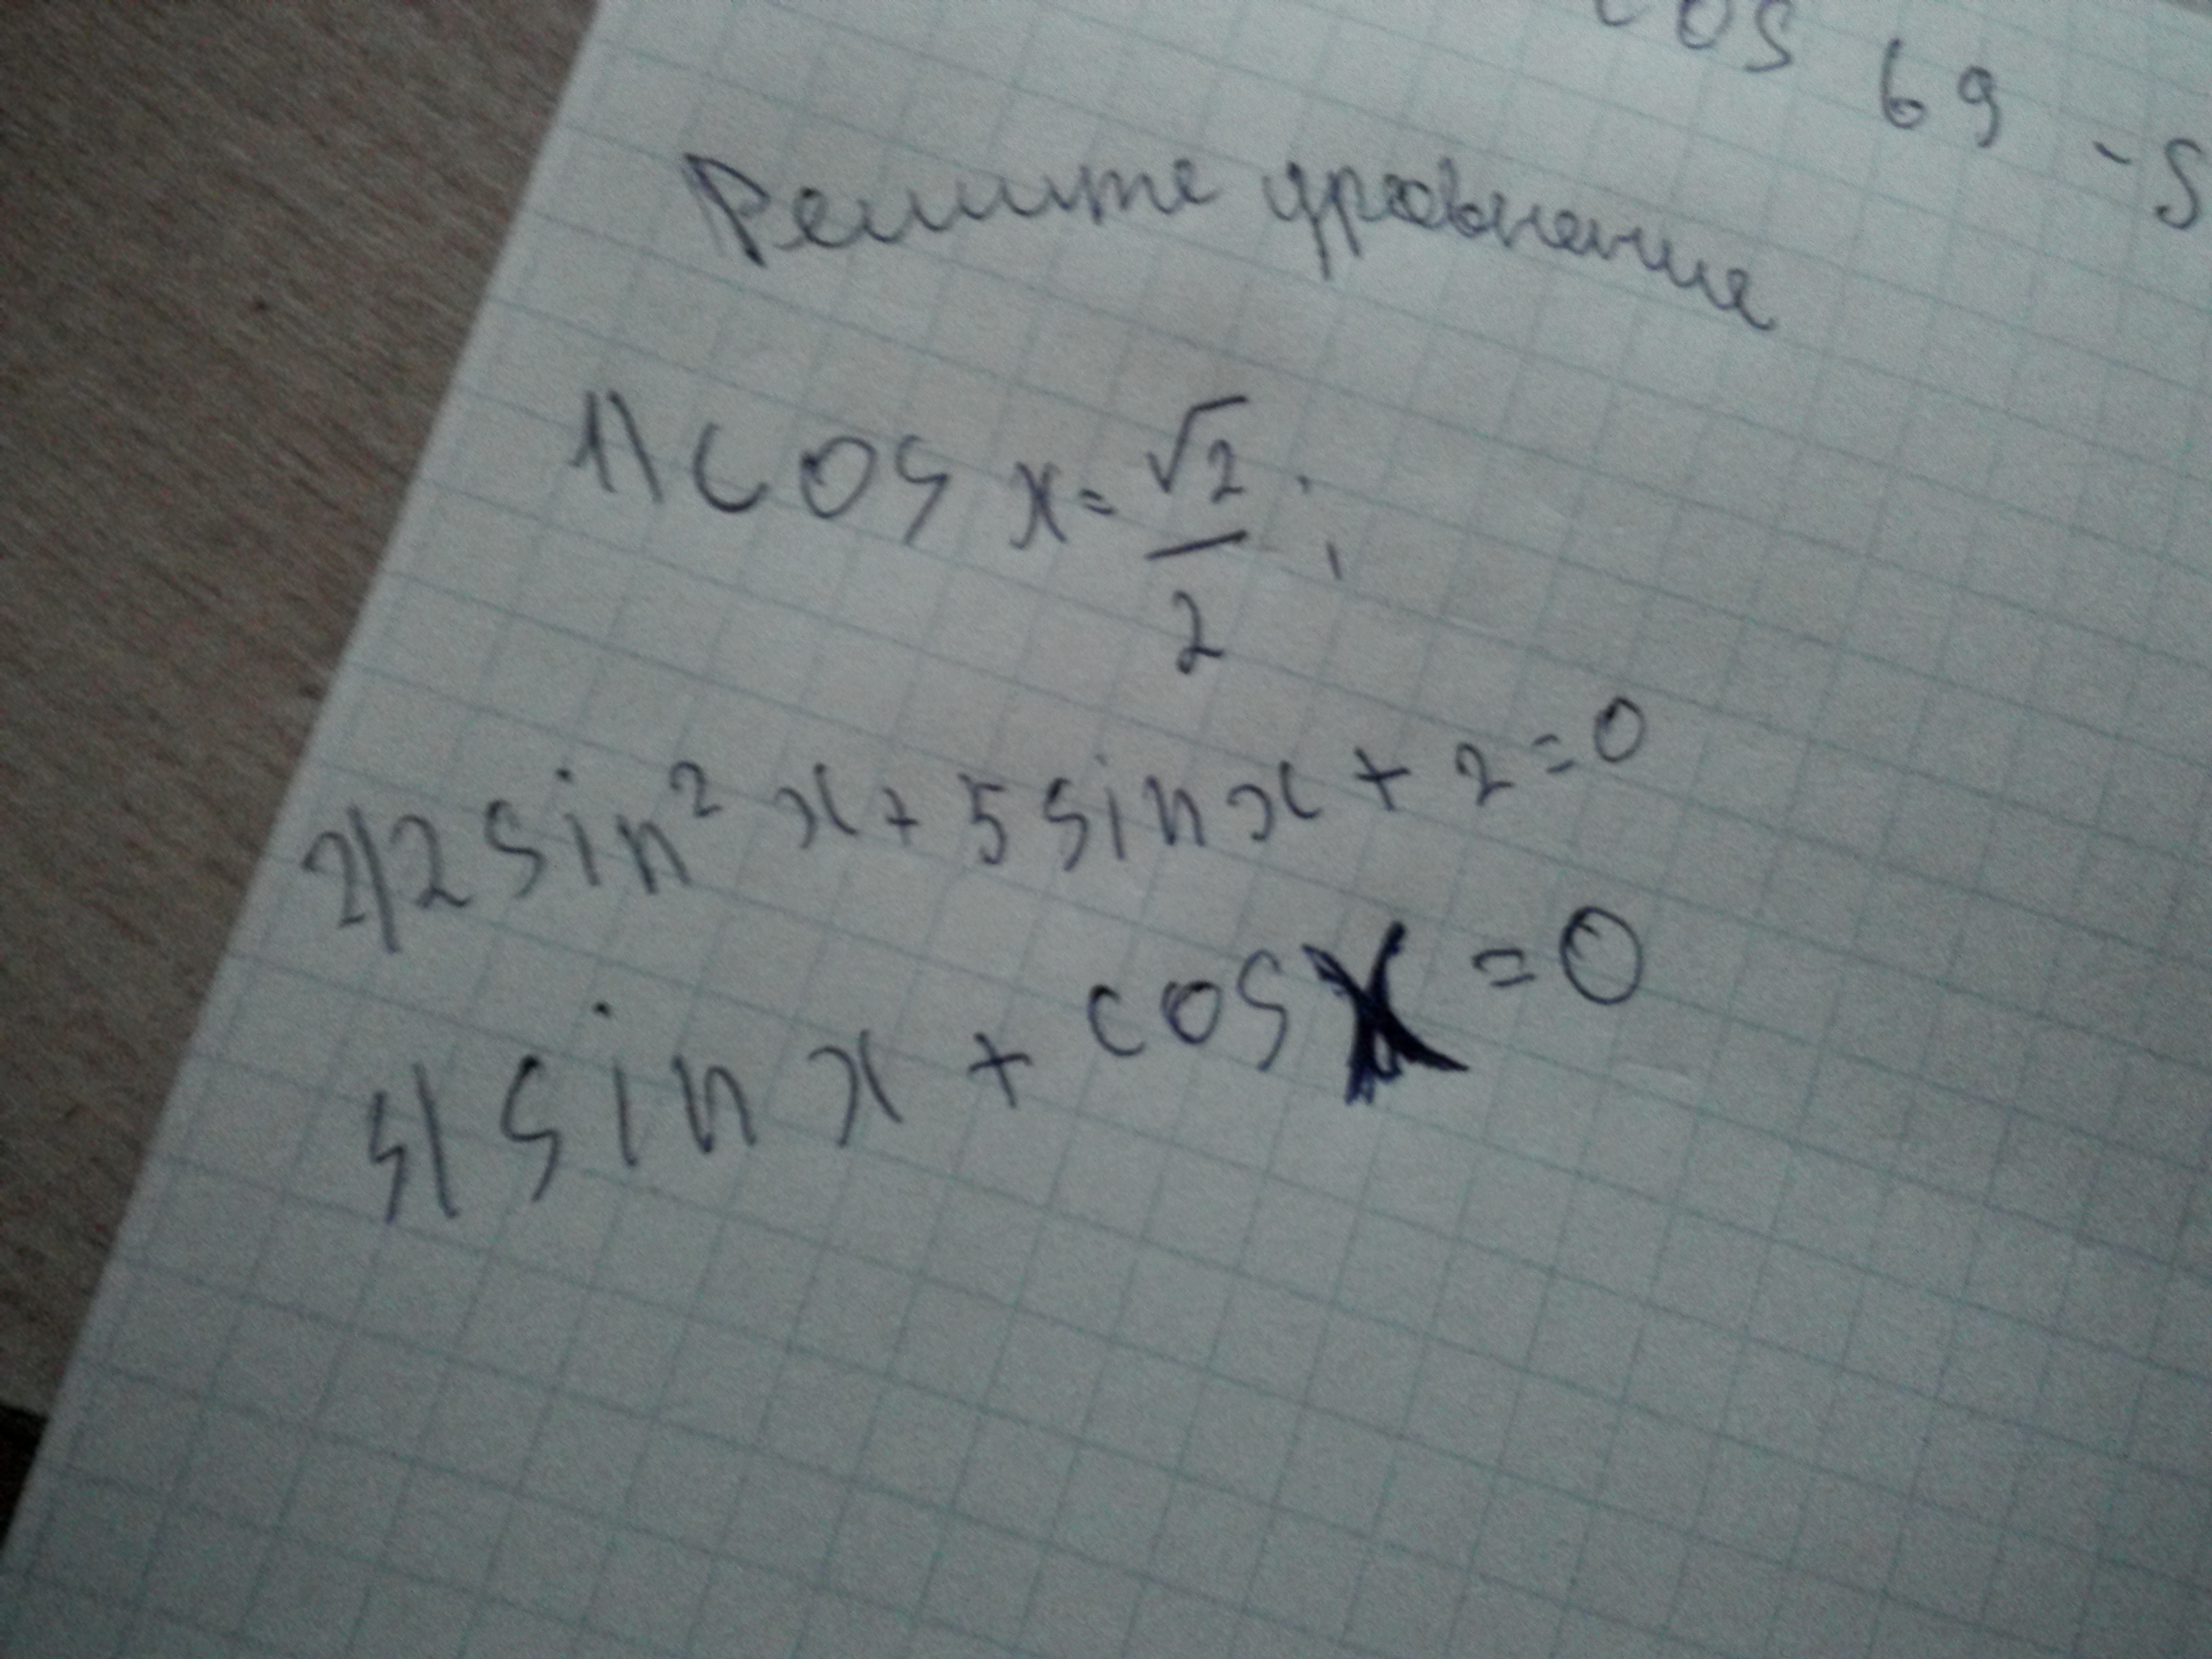 cos 69 - s
Решите уравнение
1) cos x = √2/2 ;
2) 2 sin² x + 5 sin x + 2 = 0
4) sin x + cos x = 0